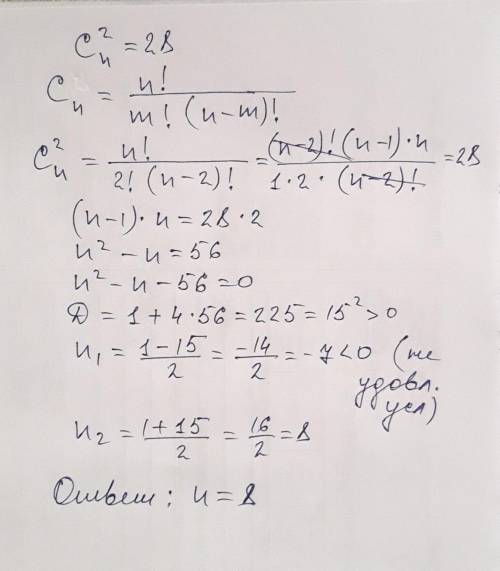 C²ₙ = 28
Cₙ = n! / m! (n-m)!
C²ₙ = n! / 2! (n-2)! = (n-2)! (n-1)·n / 1·2·(n-2)! = 28
(n-1)·n = 28·2
n² - n = 56
n² - n - 56 = 0
D = 1 + 4·56 = 225 = 15² > 0
n₁ = 1-15 / 2 = -14 / 2 = -7 < 0 (не
удовл.
усл)
n₂ = 1+15 / 2 = 16 / 2 = 8
Ответ: n = 8